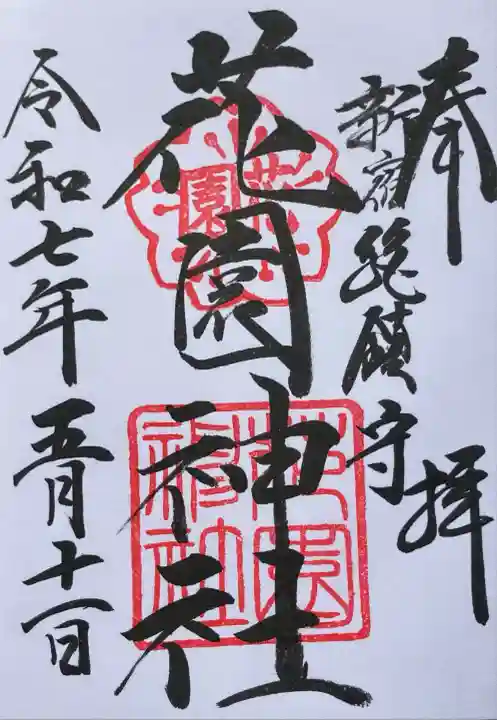 奉拝
新宿総鎮守
花園神社
令和七年五月十一日
花園
花園神社